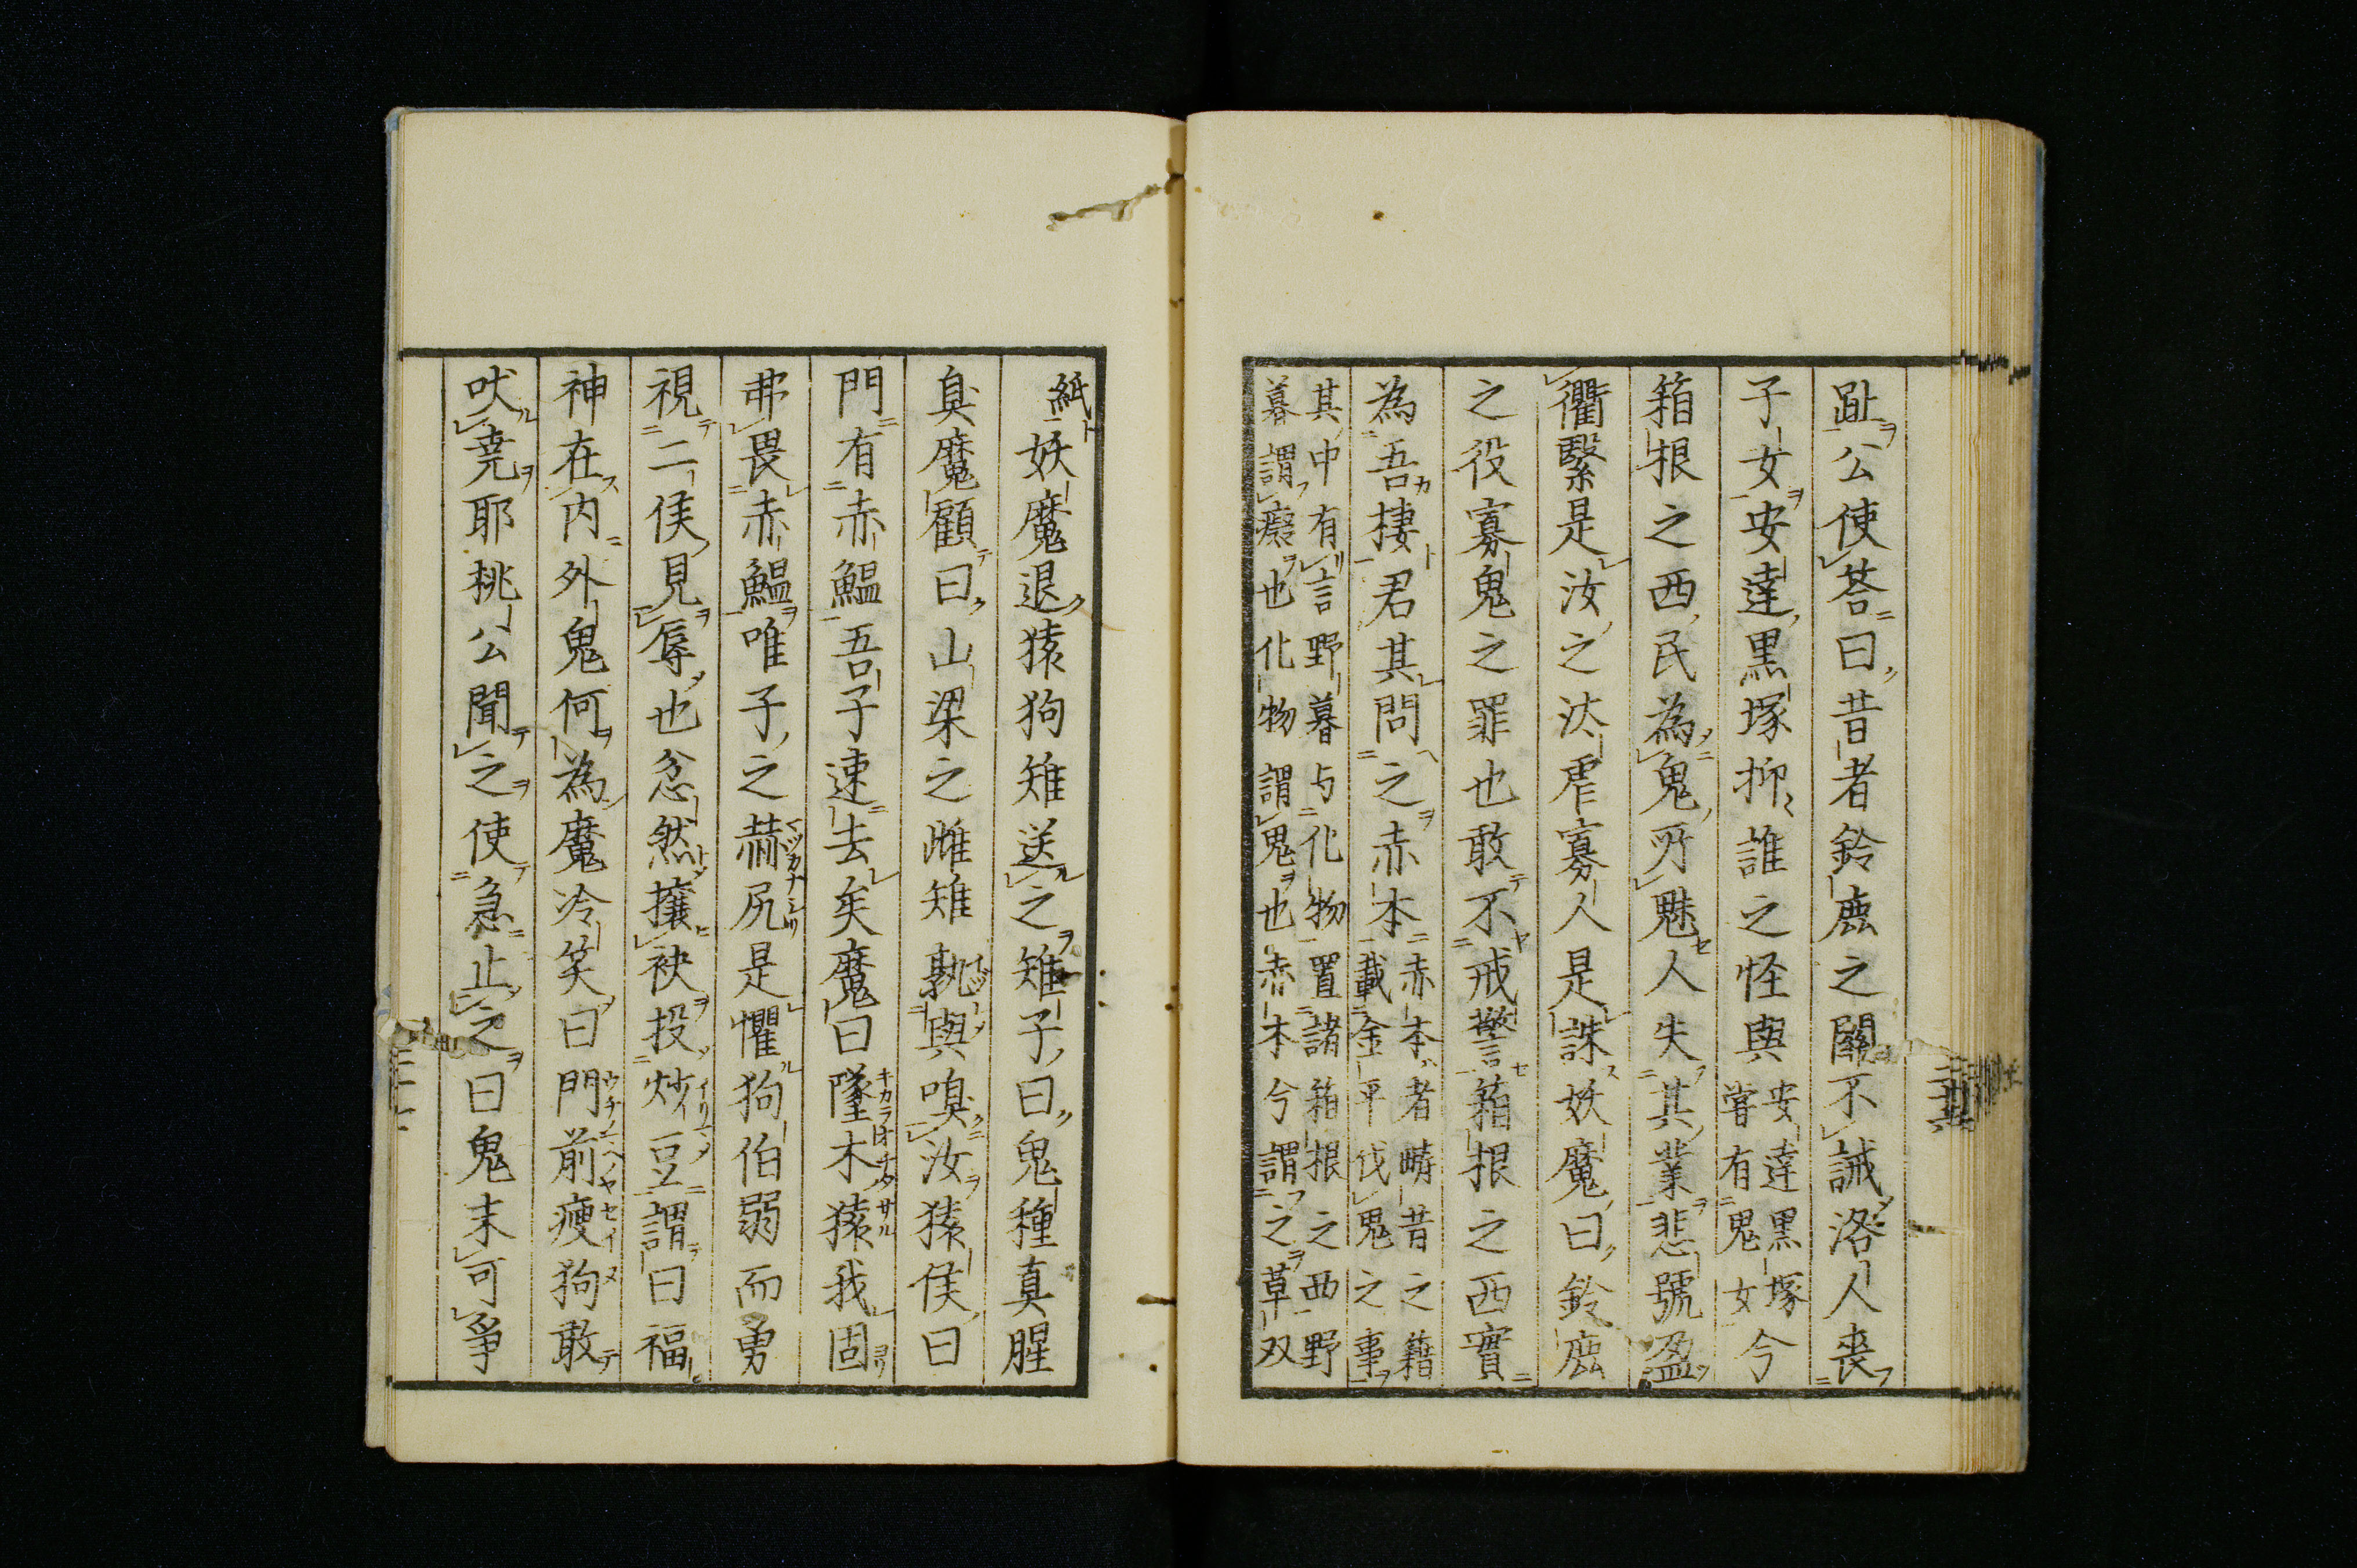 趾公使荅曰昔者鈴鹿之關不誡洛人喪
子女安達黒塚抑誰之怪與安達黒塚嘗有鬼女今
箱根之西民為鬼所魅人失其業悲號盈
衢繄是汝之汰虐寡人是誅妖魔曰鈴鹿
之役寡鬼之罪也敢不戒警箱根之西實
為吾棲君其問之赤本赤本者疇昔之籍載金平伐鬼之事
其中有言野暮与化物置諸箱根之西野
暮謂癡也化物謂鬼也赤本今謂之草双
紙妖魔退猿狗雉送之雉子曰鬼種真腥
臭魔顧曰山梁之雌雉孰與嗅汝猿侯曰
門有赤鰛吾子速去矣魔曰墜木猿我固
弗畏赤鰛唯子之赫尻是懼狗伯弱而勇
視二侯見辱也忿然攘袂投炒豆謂曰福
神在内外鬼何為魔冷笑曰門前痩狗敢
吠堯耶桃公聞之使急止之曰鬼末可爭